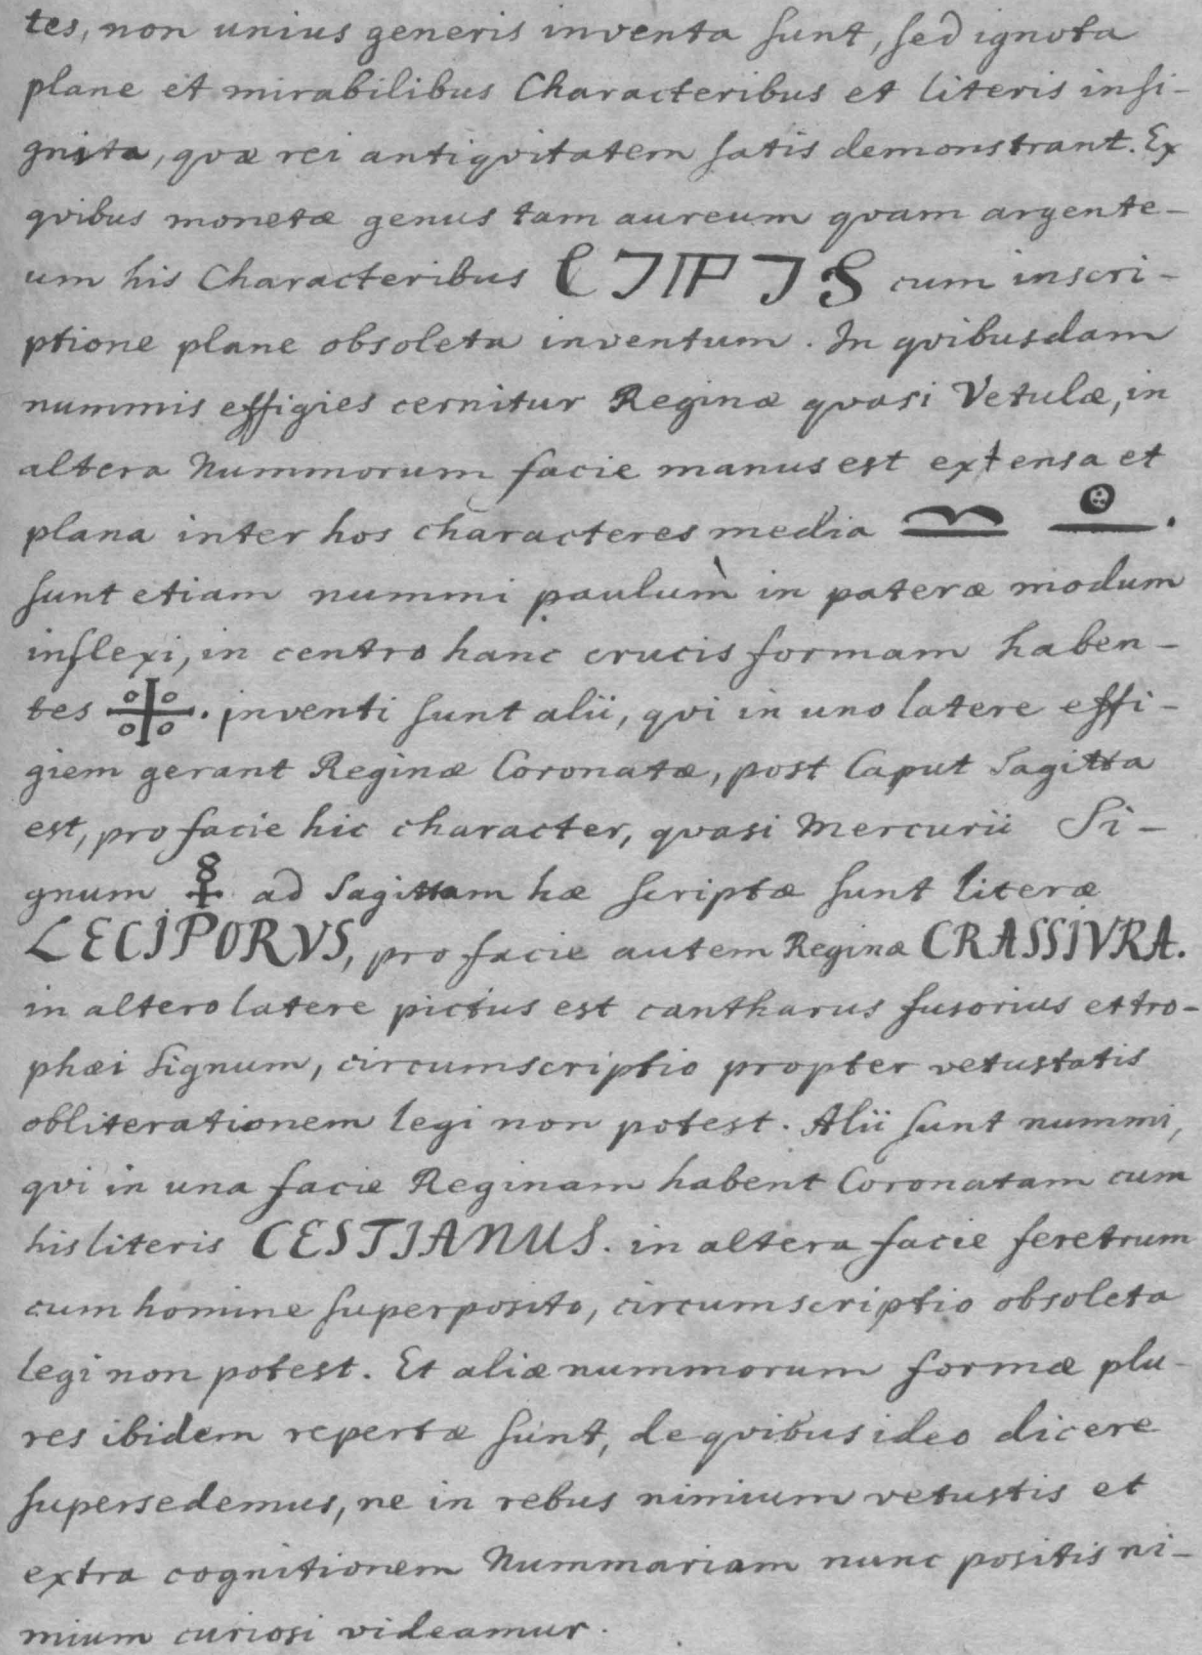 tes, non unius generis inventa sunt, sed ignota
plane et mirabilibus Characteribus et literis insi-
gnita, qvæ rei antiqvitatem satis demonstrant. Ex
qvibus monetæ genus tam aureum qvam argente-
um his Characteribus cum inscri-
ptione plane obsoleta inventum. In qvibusdam
nummis effigies cernitur Reginæ qvasi Vetulæ, in
altera Nummorum facie manus est extensa et
plana inter hos characteres media
sunt etiam nummi paulùm in pateræ modum
inflexi, in centro hanc crucis formam haben-
tes . inventi sunt alii, qvi in uno latere effi-
giem gerant Reginæ Coronatæ, post Caput Sagitta
est, pro facie hic character, qvasi Mercurii Si-
gnum ad Sagittam hæ scriptæ sunt literæ
LECIPORVS, pro facie autem Reginæ CRASSIVRA.
in altero latere pictus est cantharus fusorius et tro-
phæi Signum, circumscriptio propter vetustatis
obliterationem legi non potest. Alii sunt nummi,
qvi in una facie Reginam habent Coronatam cum
his literis CESTIANUS. in altera facie feretrum
cum homine superposito, circumscriptio obsoleta
legi non potest. Et aliæ nummorum formæ plu-
res ibidem repertæ sunt, de qvibus ideo dicere
supersedemus, ne in rebus nimium vetustis et
extra cognitionem Nummariam nunc positis ni-
mium curiosi videamur.